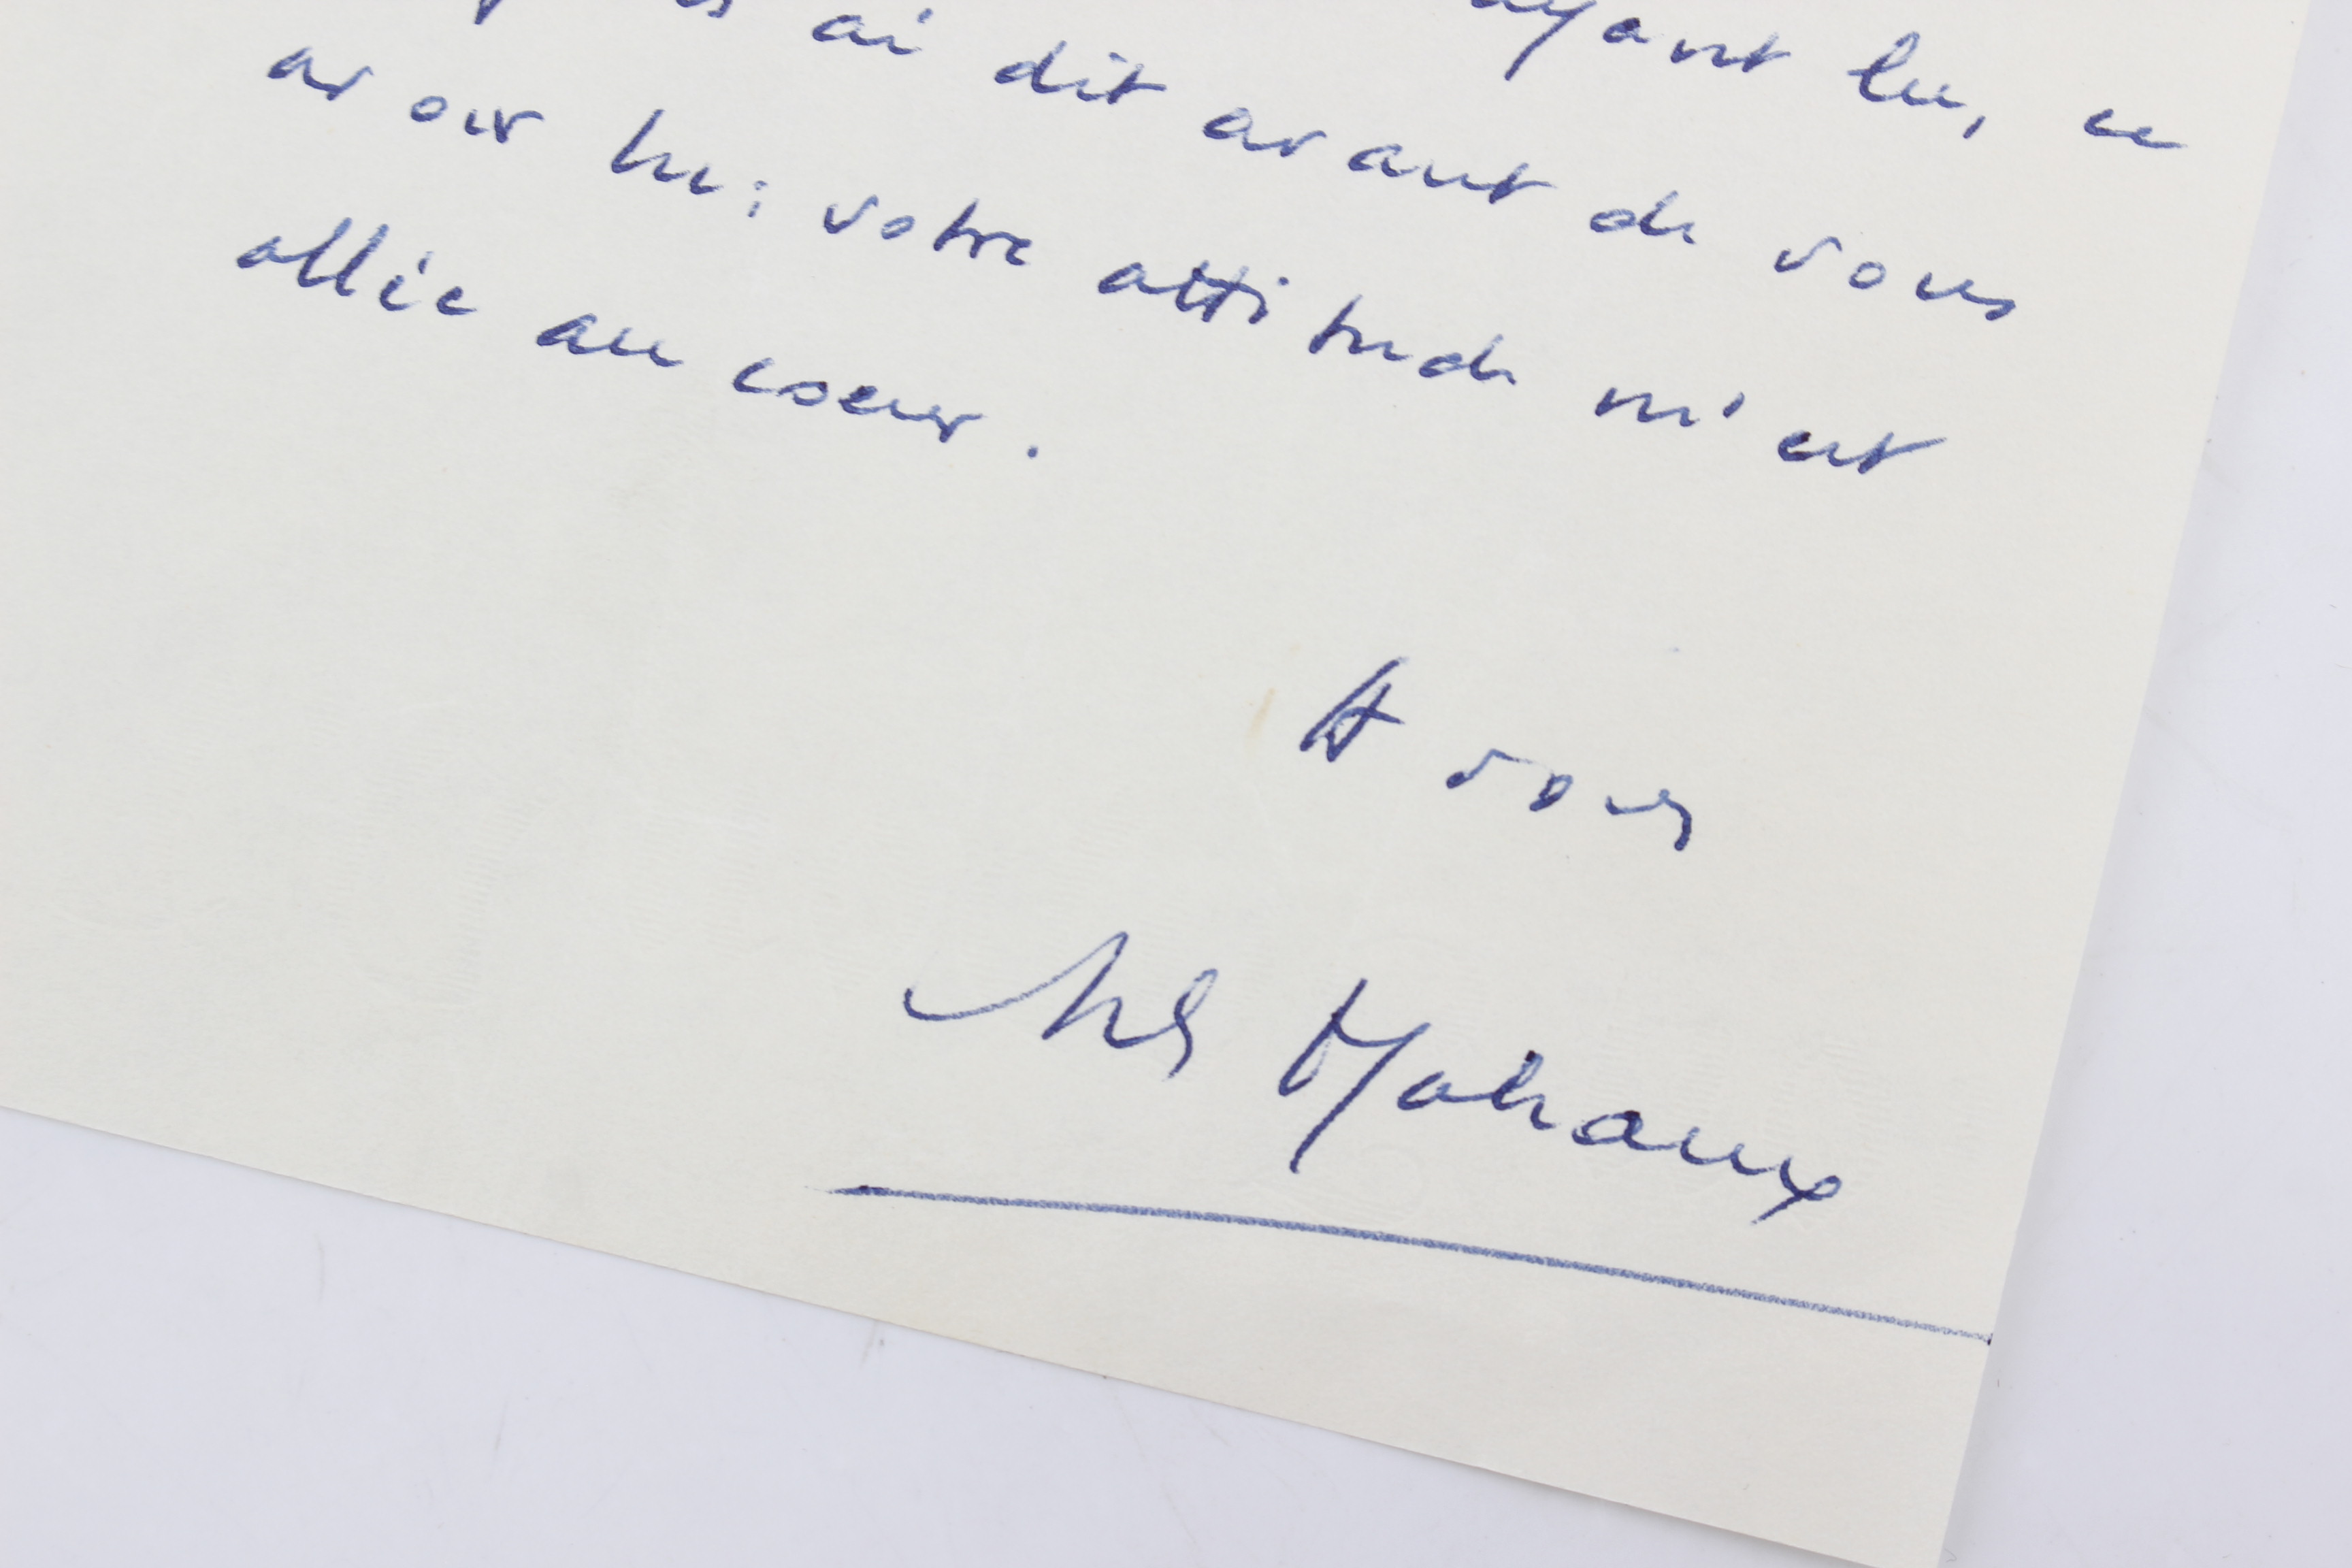 ayant lu, ce
ai dit avant de vous
avoir lu ; votre attitude m'est
allée au coeur.
A vous